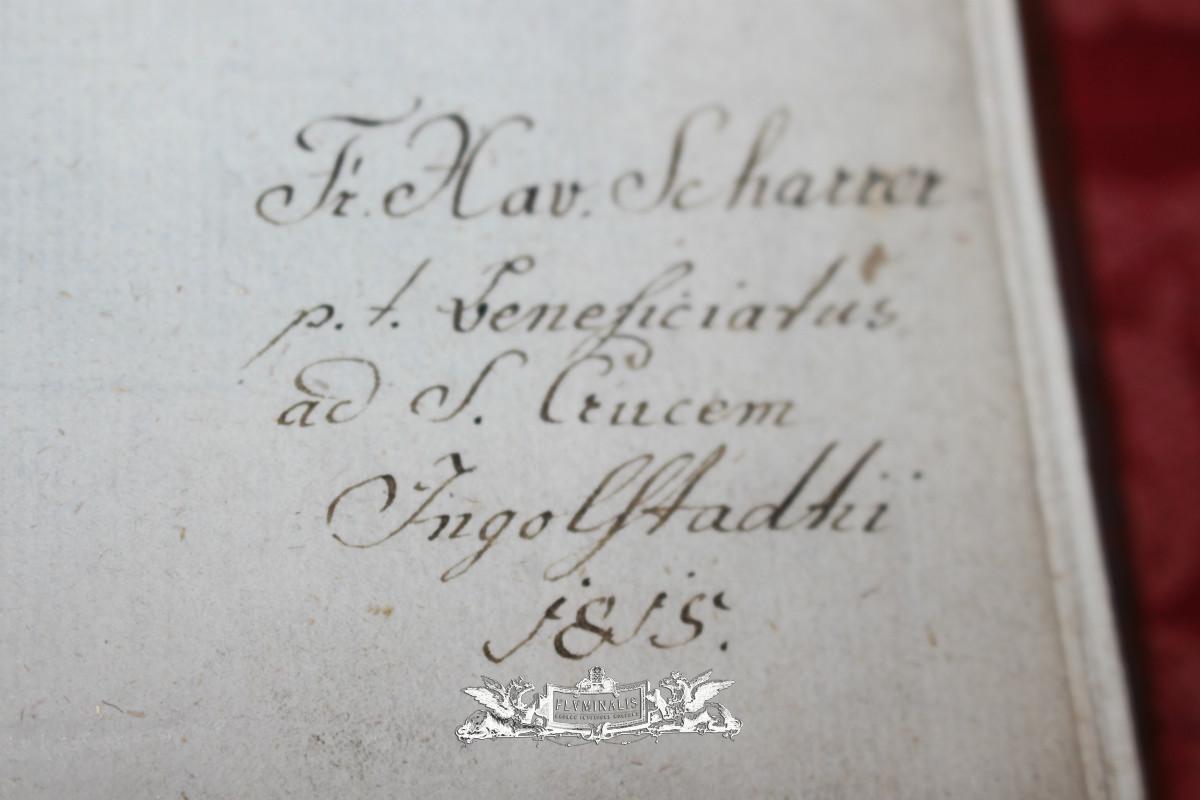 Fr. Xav. Scharrer
p. t. beneficiatus
ad S. Crucem
Ingolstadhii
1815.
FLVMINALIS